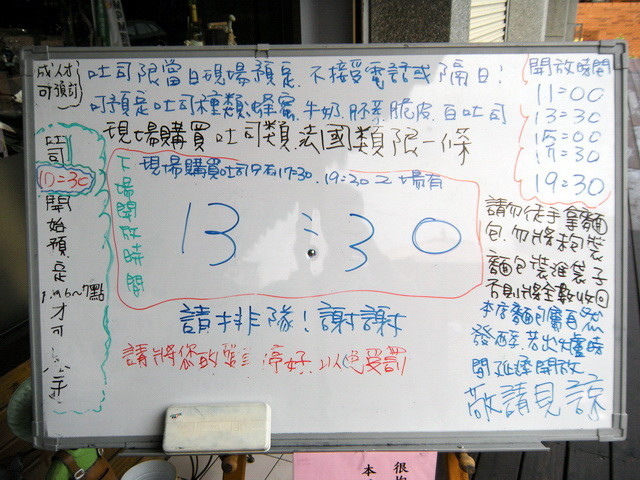 成人才
可預訂
吐司限當日現場預定.不接受電話或隔日!
可預定吐司種類:蜂蜜.牛奶.胚芽.脆皮.白吐司
現場購買吐司類.法國類限一條
現場購買吐司只有17:30.19:30 2場有
下場開放時間
13:30
請排隊!謝謝
請將您的 停好.以免受罰
吐司
10:30
開始預定
P.M6~7點
才可
開放時間
11:00
13:30
15:00
17:30
19:30
請勿徒手拿麵
包.勿將未包裝
麵包裝進袋子
否則將全數收回
本店麵包屬自然
發酵.若出爐時
間延遲開放
敬請見諒
很抱
本